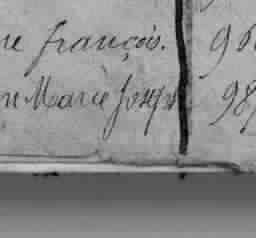 ne françois. 96
ne Marie Joseph 98